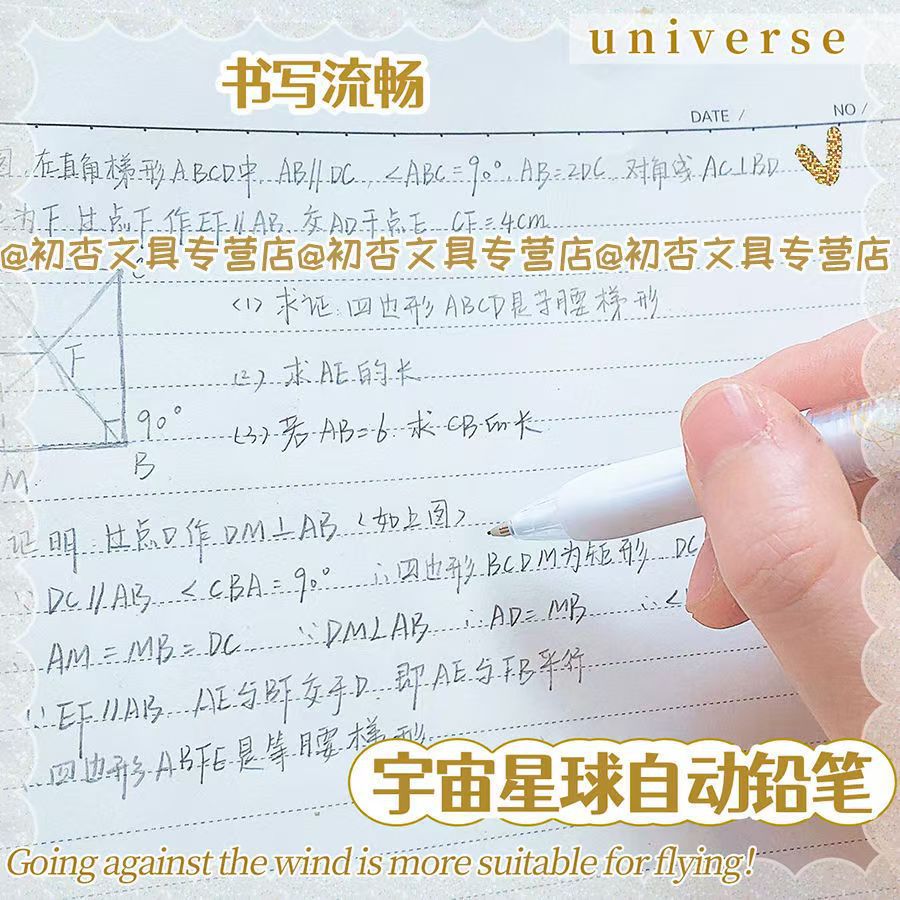 universe
书写流畅
DATE /
NO /
在直角梯形ABCD中, AB//DC, <ABC=90°, AB=2DC 对角线 AC⊥BD
为F 过点F作EF//AB 交AD于点E CF=4cm
@初杏文具专营店@初杏文具专营店@初杏文具专营店
C
(1) 求证:四边形ABCD是等腰梯形
F
(2) 求AE的长
90°
(3) 若AB=6 求CB的长
M
B
证明 过点D作DM⊥AB (如上图)
∵ DC//AB <CBA=90° ∴四边形BCDM为矩形 DC
AM=MB=DC ∵DM⊥AB ∴AD=MB ∴<
∵EF//AB AE与BF交于D 即AE与FB平行
四边形ABFE是等腰梯形
宇宙星球自动铅笔
Going against the wind is more suitable for flying!